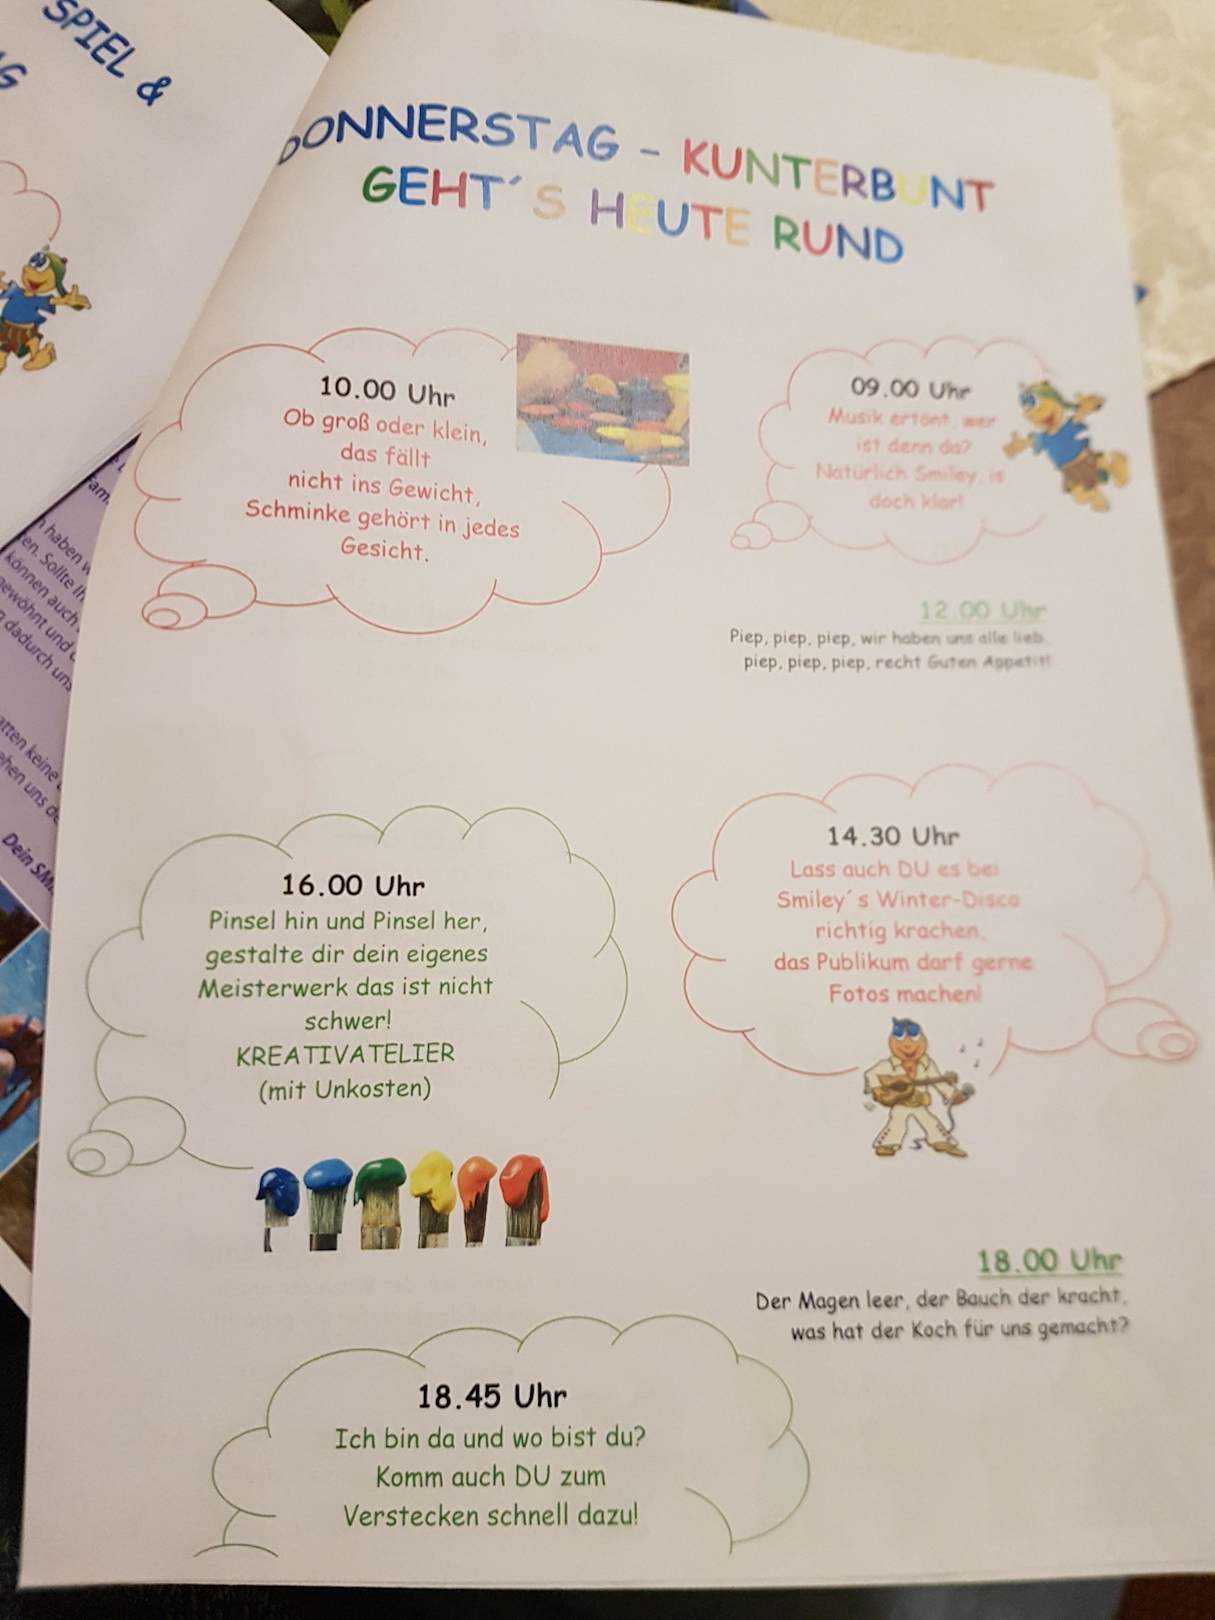 SPIEL &
G
DONNERSTAG - KUNTERBUNT
GEHT´S HEUTE RUND
09.00 Uhr
Musik ertönt, wer
ist denn da?
Natürlich Smiley, is
doch klar!
10.00 Uhr
Ob groß oder klein,
das fällt
nicht ins Gewicht,
Schminke gehört in jedes
Gesicht.
12.00 Uhr
Piep, piep, piep, wir haben uns alle lieb,
piep, piep, piep, recht Guten Appetit!
14.30 Uhr
Lass auch DU es bei
Smiley´s Winter-Disco
richtig krachen,
das Publikum darf gerne
Fotos machen!
16.00 Uhr
Pinsel hin und Pinsel her,
gestalte dir dein eigenes
Meisterwerk das ist nicht
schwer!
KREATIVATELIER
(mit Unkosten)
18.00 Uhr
Der Magen leer, der Bauch der kracht,
was hat der Koch für uns gemacht?
18.45 Uhr
Ich bin da und wo bist du?
Komm auch DU zum
Verstecken schnell dazu!
haben
en. Sollte
können auch
ewöhnt und
dadurch uns
tten keine
ehen uns
Dein